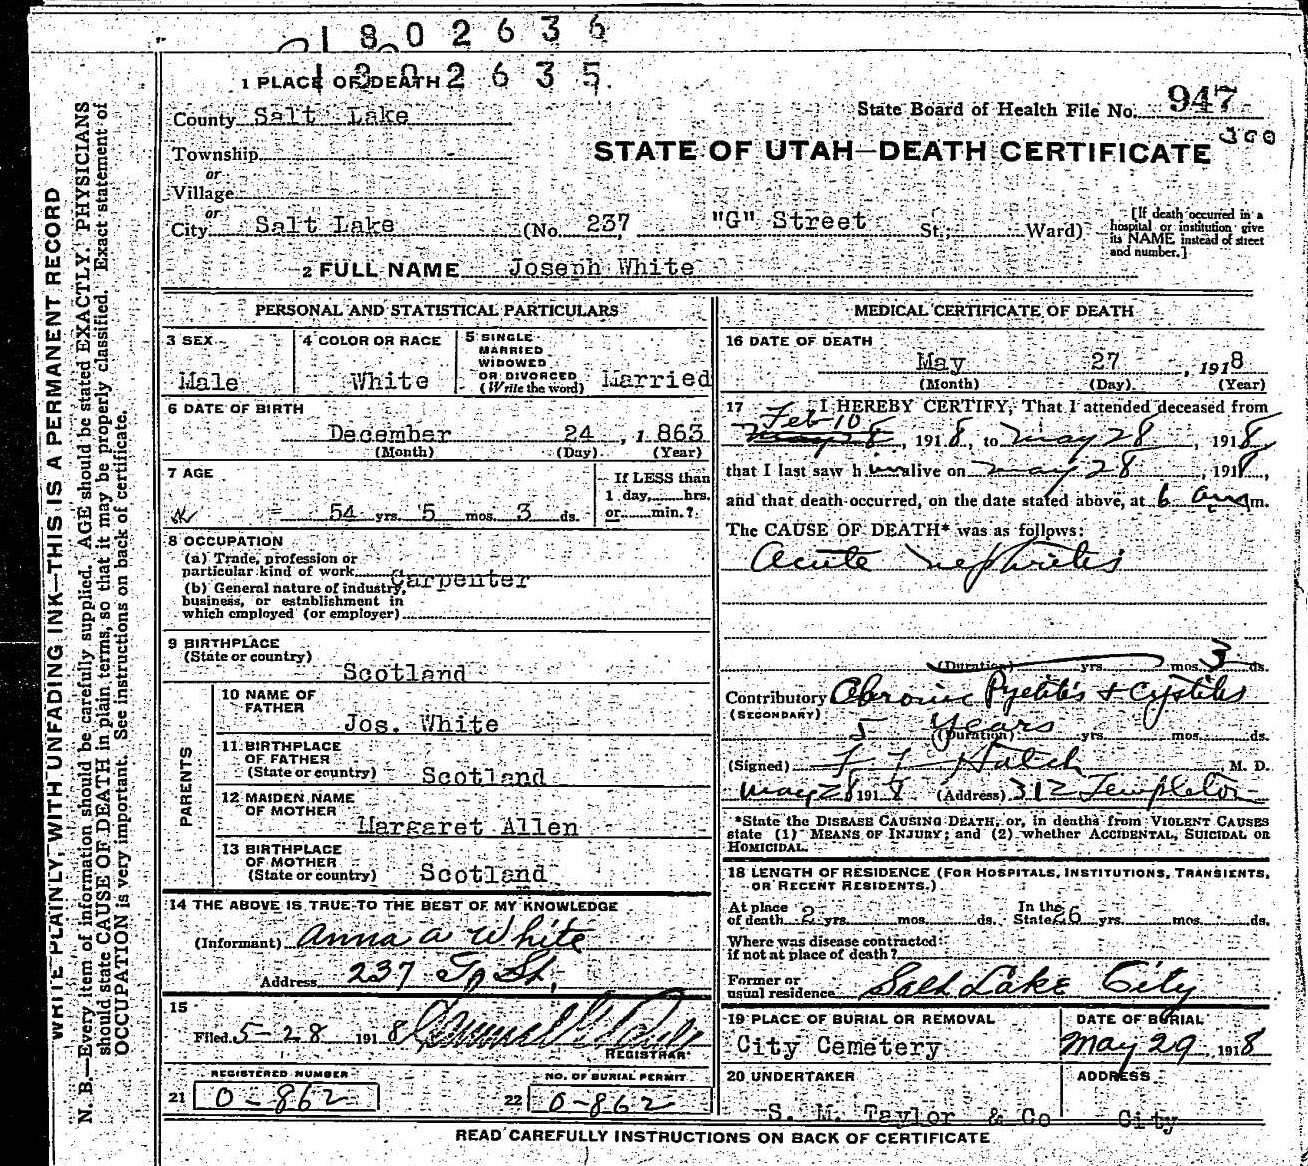 1802636
1302635
1 PLACE OF DEATH
County Salt Lake
State Board of Health File No. 947
300
Township
or
STATE OF UTAH—DEATH CERTIFICATE
Village
or
City Salt Lake (No. 237, "G" Street St.; Ward)
[If death occurred in a
hospital or institution give
its NAME instead of street
and number.]
2 FULL NAME Joseph White
PERSONAL AND STATISTICAL PARTICULARS
3 SEX
Male
4 COLOR OR RACE
White
5 SINGLE
MARRIED
WIDOWED
OR DIVORCED
(Write the word) Married
6 DATE OF BIRTH
December 24, 1863
(Month) (Day) (Year)
7 AGE
54 yrs. 5 mos. 3 ds.
If LESS than
1 day, hrs.
or min.?
8 OCCUPATION
(a) Trade, profession or
particular kind of work Carpenter
(b) General nature of industry,
business, or establishment in
which employed (or employer)
9 BIRTHPLACE
(State or country)
Scotland
PARENTS
10 NAME OF
FATHER
Jos. White
11 BIRTHPLACE
OF FATHER
(State or country) Scotland
12 MAIDEN NAME
OF MOTHER
Margaret Allen
13 BIRTHPLACE
OF MOTHER
(State or country) Scotland
14 THE ABOVE IS TRUE TO THE BEST OF MY KNOWLEDGE
(Informant) Anna A White
Address 237 G St.
15
Filed 5-28 1918
REGISTRAR
REGISTERED NUMBER
21 0-862
NO. OF BURIAL PERMIT
22 0-862
MEDICAL CERTIFICATE OF DEATH
16 DATE OF DEATH
May 27, 1918
(Month) (Day) (Year)
17 I HEREBY CERTIFY, That I attended deceased from
Feb-10
May 28, 1918, to May 28, 1918,
that I last saw him alive on May 28, 1918,
and that death occurred, on the date stated above, at 6 am m.
The CAUSE OF DEATH* was as follows:
Acute Nephritis
(Duration) yrs. mos. 3 ds.
Contributory Chronic Pyelitis + Cystitis
(SECONDARY)
5 years
(Duration) yrs. mos. ds.
(Signed) F. F. Hatch M. D.
May 28 1918 (Address) 312 Templeton
*State the DISEASE CAUSING DEATH, or, in deaths from VIOLENT CAUSES
state (1) MEANS OF INJURY; and (2) whether ACCIDENTAL, SUICIDAL OR
HOMICIDAL.
18 LENGTH OF RESIDENCE (FOR HOSPITALS, INSTITUTIONS, TRANSIENTS,
OR RECENT RESIDENTS.)
At place
of death 2 yrs. mos. ds.
In the
State 26 yrs. mos. ds.
Where was disease contracted
if not at place of death?
Former or
usual residence Salt Lake City
19 PLACE OF BURIAL OR REMOVAL
City Cemetery
DATE OF BURIAL
May 29, 1918
20 UNDERTAKER
S. M. Taylor & Co
ADDRESS
City
READ CAREFULLY INSTRUCTIONS ON BACK OF CERTIFICATE
WRITE PLAINLY, WITH UNFADING INK—THIS IS A PERMANENT RECORD
N. B.—Every item of information should be carefully supplied. AGE should be stated EXACTLY. PHYSICIANS
should state CAUSE OF DEATH in plain terms, so that it may be properly classified. Exact statement of
OCCUPATION is very important. See instructions on back of certificate.